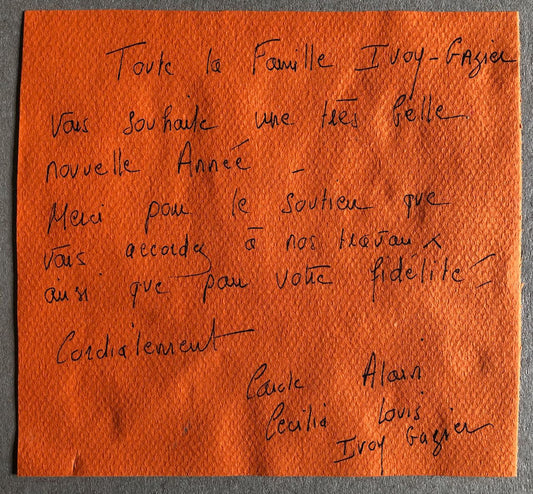 Toute la Famille Ivoy-Gazier
Vous souhaite une très belle
nouvelle Année
Merci pour le soutien que
vous accordez à nos travaux
ainsi que pour votre fidélité
Cordialement
Carole Alain
Cécilia Louis
Ivoy Gazier